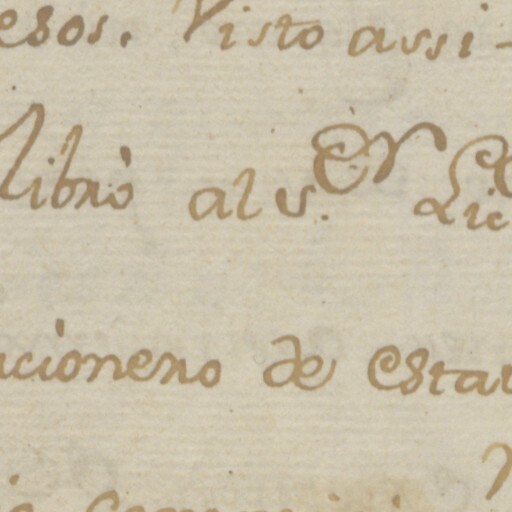 esos. Visto assi-
libró al s.or Lic
acionero de Estav